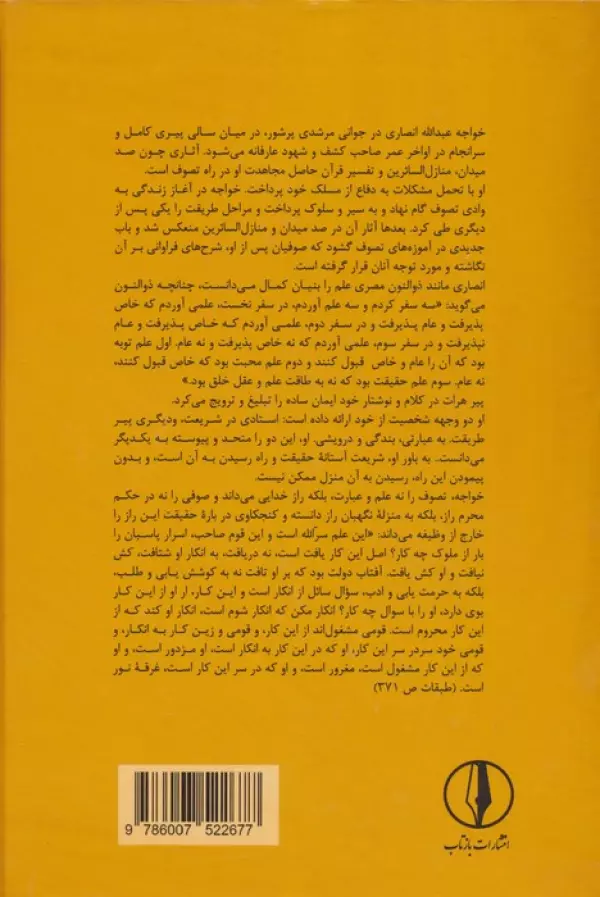 خواجه عبدالله انصاری در جوانی مرشدی پرشور، در میان سالی پیری کامل و
سرانجام در اواخر عمر صاحب کشف و شهود عارفانه می‌شود. آثاری چون صد
میدان، منازل‌السائرین و تفسیر قرآن حاصل مجاهدت او در راه تصوف است.
او با تحمل مشکلات به دفاع از مسلک خود پرداخت. خواجه در آغاز زندگی به
وادی تصوف گام نهاد و به سیر و سلوک پرداخت و مراحل طریقت را یکی پس از
دیگری طی کرد. بعدها آثار آن در صد میدان و منازل‌السائرین منعکس شد و باب
جدیدی در آموزه‌های تصوف گشود که صوفیان پس از او، شرح‌های فراوانی بر آن
نگاشته و مورد توجه آنان قرار گرفته است.
انصاری مانند ذوالنون مصری علم را بنیان کمال می‌دانست، چنانچه ذوالنون
می‌گوید: «سه سفر کردم و سه علم آوردم، در سفر نخست، علمی آوردم که خاص
پذیرفت و عام پذیرفت و در سفر دوم، علمی آوردم که خاص پذیرفت و عام
نپذیرفت و در سفر سوم، علمی آوردم که نه خاص پذیرفت و نه عام. اول علم توبه
بود که آن را عام و خاص قبول کنند و دوم علم محبت بود که خاص قبول کنند،
نه عام. سوم علم حقیقت بود که نه به طاقت علم و عقل خلق بود.»
پیر هرات در کلام و نوشتار خود ایمان ساده را تبلیغ و ترویج می‌کرد.
او دو وجهه شخصیت از خود ارائه داده است: استادی در شریعت، ودیگری پیر
طریقت. به عبارتی، بندگی و درویشی. او، این دو را متحد و پیوسته به یکدیگر
می‌دانست. به باور او، شریعت آستانهٔ حقیقت و راه رسیدن به آن است، و بدون
پیمودن این راه، رسیدن به آن منزل ممکن نیست.
خواجه، تصوف را نه علم و عبارت، بلکه راز خدایی می‌داند و صوفی را نه در حکم
محرم راز، بلکه به منزلهٔ نگهبان راز دانسته و کنجکاوی در بارهٔ حقیقت این راز را
خارج از وظیفه می‌داند: «این علم سرّالله است و این قوم صاحب، اسرار پاسبان را
بار از ملوک چه کار؟ اصل این کار یافت است، نه دریافت، به انکار او شتافت، کش
نیافت و او کش یافت. آفتاب دولت بود که بر او تافت نه به کوشش یابی و طلب،
بلکه به حرمت یابی و ادب، سؤال سائل از انکار است و این کار، ار او از این کار
بوی دارد، او را با سوال چه کار؟ انکار مکن که انکار شوم است، انکار او کند که از
این کار محروم است. قومی مشغول‌اند از این کار، و قومی و زین کار به انکار، و
قومی خود سردر سر این کار، او که در این کار به انکار است، او مزدور است، و او
که از این کار مشغول است، مغرور است، و او که در سر این کار است، غرقهٔ نور
است. (طبقات ص ۳۷۱)
9 786007 522677
انتشارات بازتاب